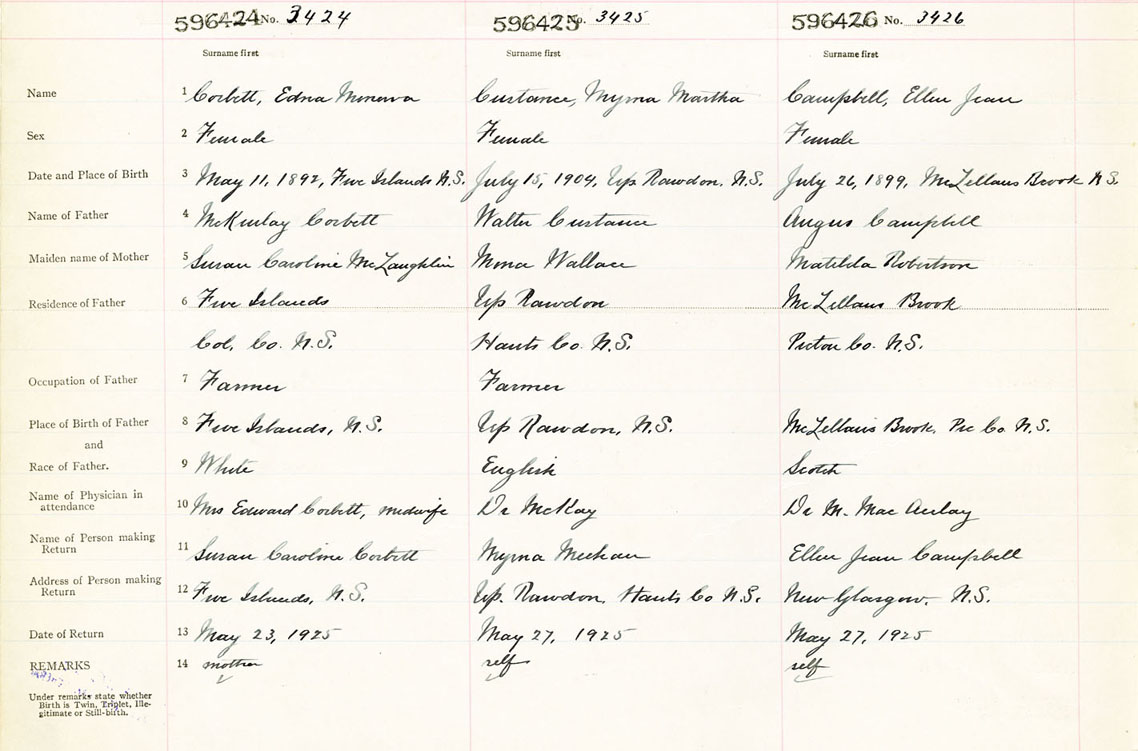 596424 No. 3424 596425 No. 3425 596426 No. 3426
Surname first Surname first Surname first
Name 1 Corbett, Edna Minerva Custance, Myrna Martha Campbell, Ellen Jean
Sex 2 Female Female Female
Date and Place of Birth 3 May 11, 1892, Five Islands N.S. July 15, 1904, Up Rawdon, N.S. July 26, 1899, McLellans Brook N.S.
Name of Father 4 McKinlay Corbett Walter Custance Angus Campbell
Maiden name of Mother 5 Susan Caroline McLaughlin Mona Wallace Matilda Robertson
Residence of Father 6 Five Islands Up Rawdon McLellans Brook
Col. Co. N.S. Hants Co. N.S. Pictou Co. N.S.
Occupation of Father 7 Farmer Farmer
Place of Birth of Father 8 Five Islands, N.S. Up Rawdon, N.S. McLellans Brook, Pic Co. N.S.
and
Race of Father. 9 White English Scotch
Name of Physician in
attendance 10 Mrs Edward Corbett, midwife Dr McKay Dr M. MacAulay
Name of Person making
Return 11 Susan Caroline Corbett Myrna Meehan Ellen Jean Campbell
Address of Person making
Return 12 Five Islands, N.S. Up. Rawdon, Hants Co N.S. New Glasgow. N.S.
Date of Return 13 May 23, 1925 May 27, 1925 May 27, 1925
REMARKS 14 mother self self
Under remarks state whether
Birth is Twin, Triplet, Ille-
gitimate or Still-birth.